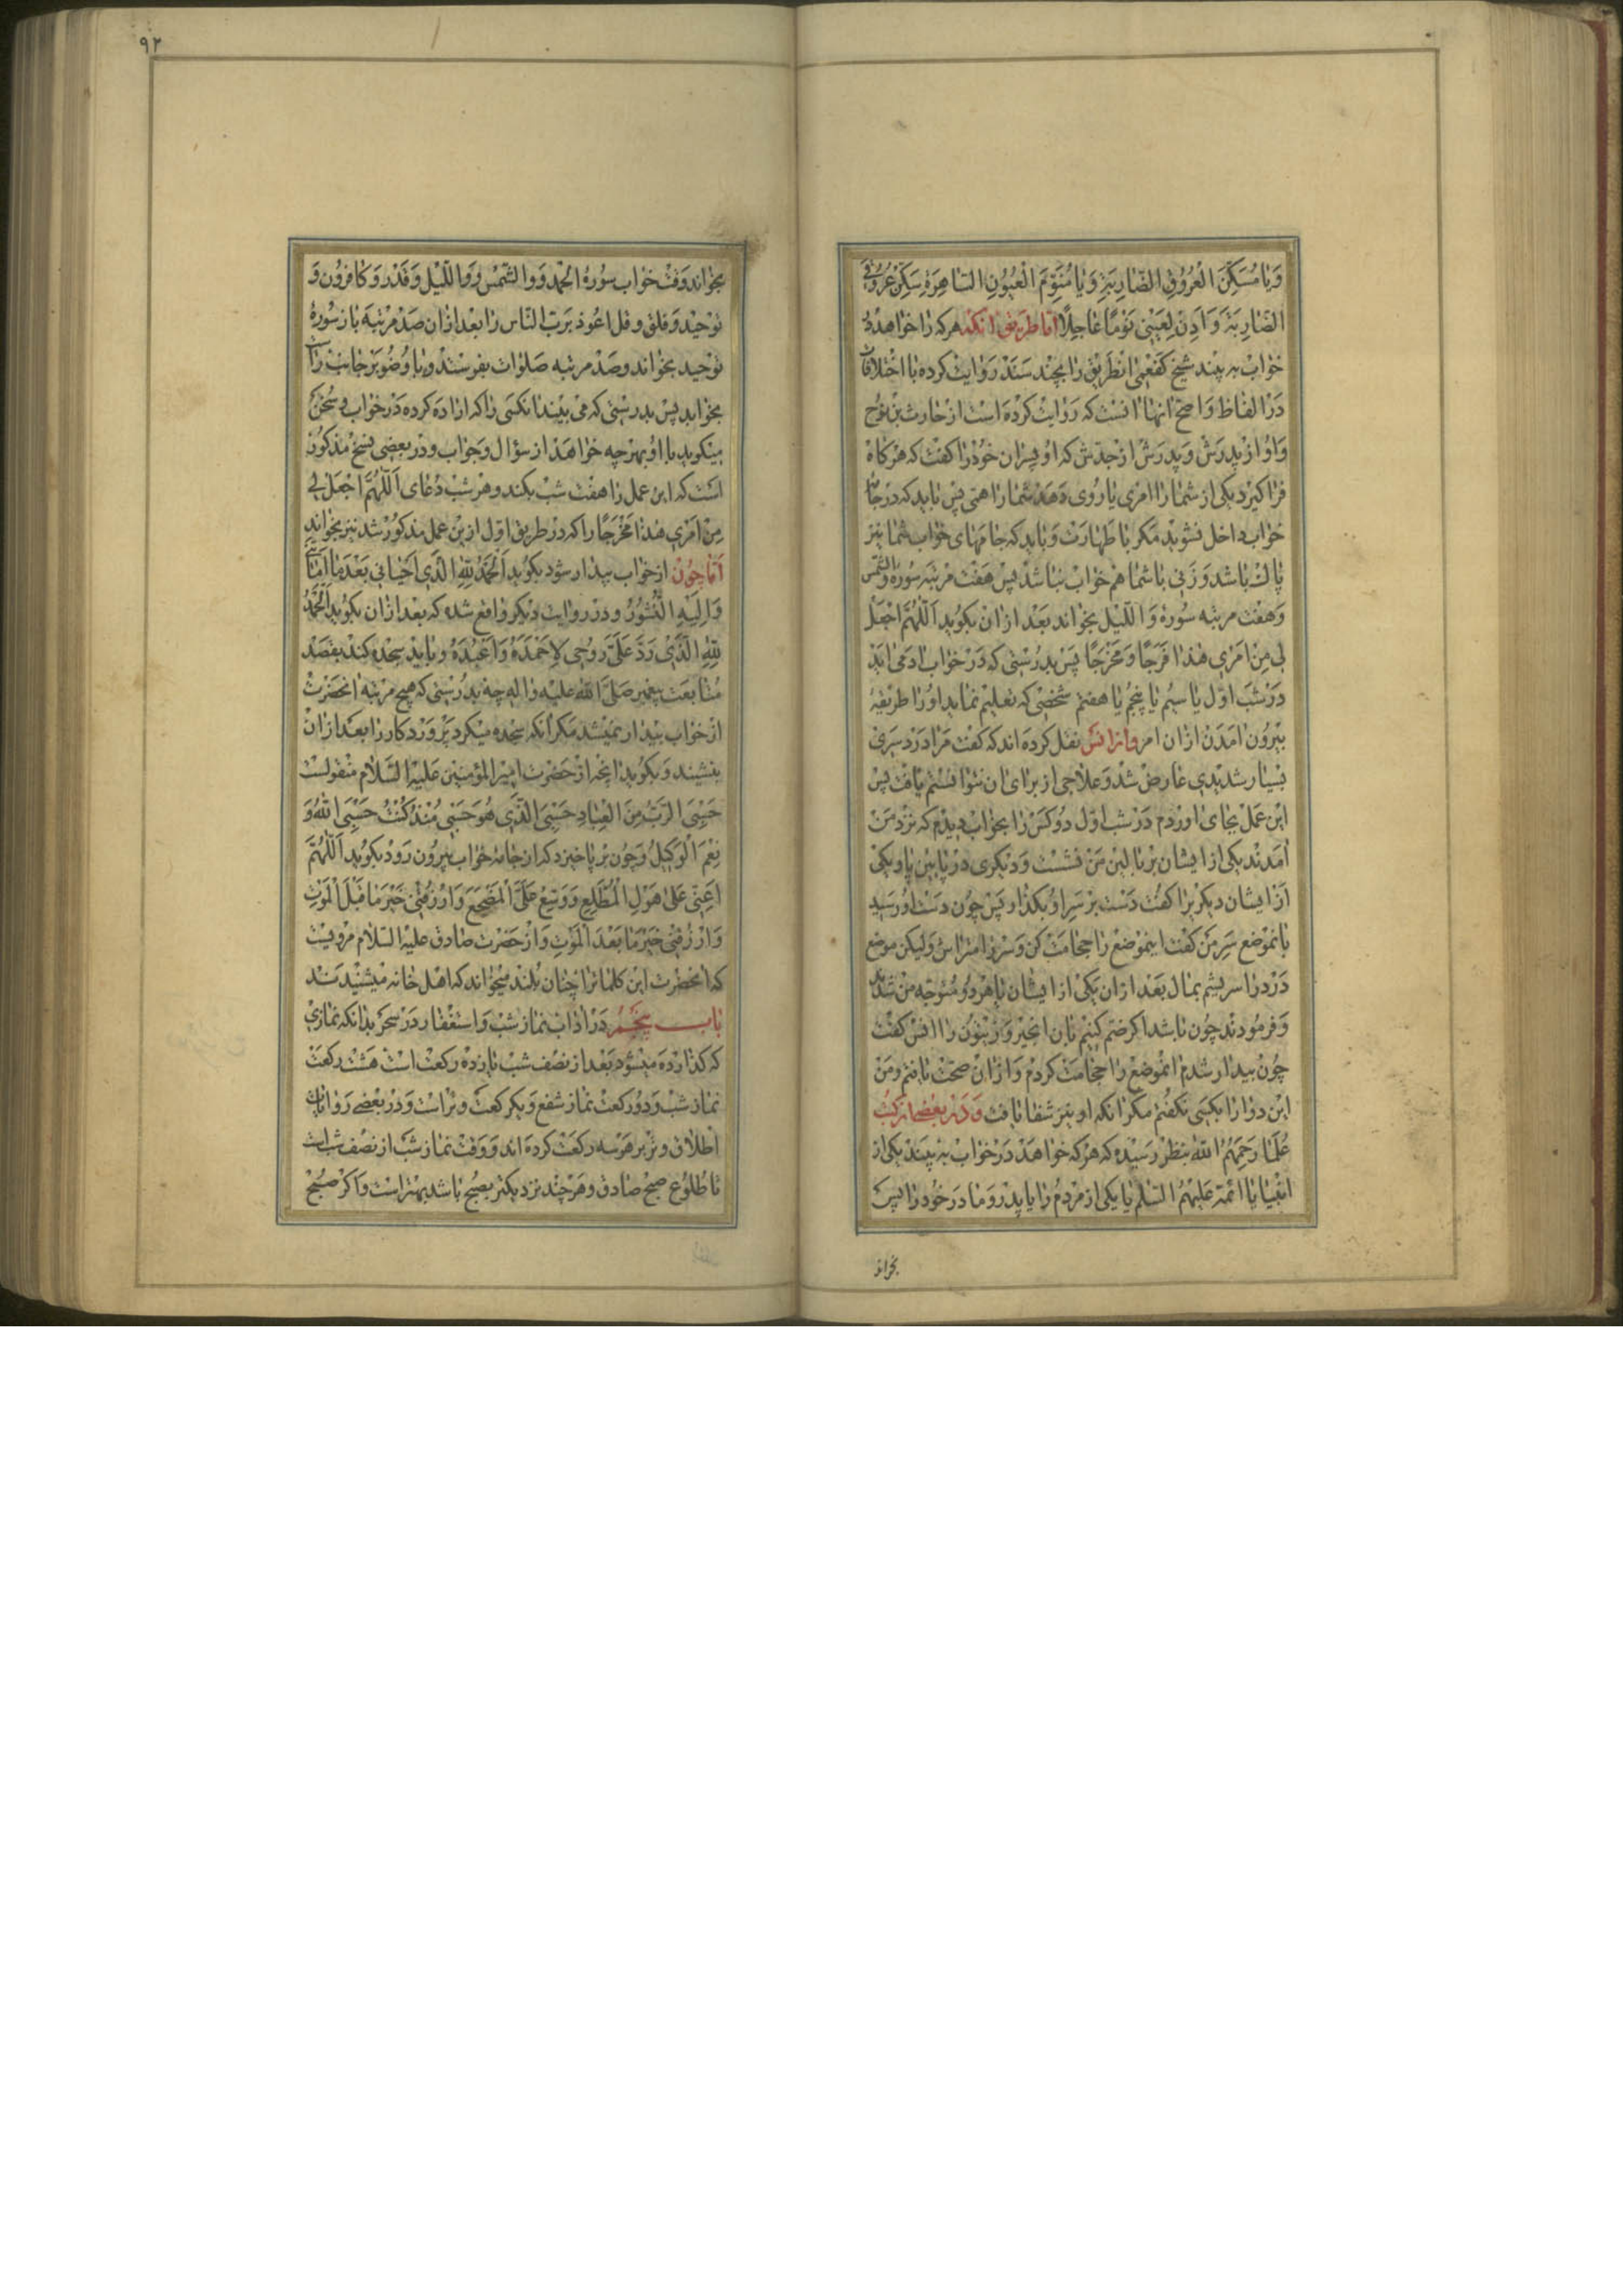 وَيَا مُسَكِّنَ الْعُرُوقِ الضّارِبَةِ وَيَا مُنَوِّمَ الْعُيُونِ السّاهِرَةِ سَكِّنْ عُرُوقِيَ
الضّارِبَةَ وَأذِنْ لِعَيْنى نَوْمًا عَاجِلًا امّا طريق انكه هركه را خواهد در
خواب به بيند شيخ كفعمى انطريق را بچند سند روايت كرده با اختلافات
در الفاظ واصح انها انست كه روايت كرده است از حارث بن روح
واو از پدرش وپدرش از جدش كه او پسران خود را كفت كه هركاه
فرا كيرد يكى از شما را امرى يا روى دهد شما را همى پس بايد كه در جامه
خواب داخل نشويد مكر با طهارت وبايد كه جامهاى خواب شما نيز
پاك باشد وزنى با شما هم خواب نباشد پس هفت مرتبه سوره والشمس
وهفت مرتبه سوره والليل بخواند بعد ازان بكويد اَللّهُمَّ اجْعَلْ
لى مِنْ اَمْرى هٰذا فَرَجًا وَمَخْرَجًا پس بدرستى كه در خواب اد مى ايد
در شب اول يا سيم يا پنجم يا هفتم شخصى كه تعليم نمايد او را طريقهٔ
بيرون امدن ازان امر وازانس نقل كرده اند كه كفت مرا درد سرى
بسيار شديدى عارض شد وعلاجى از براى ان نتوانستم يافت پس
اين عمل بجاى اوردم در شب اول دو كس را بخواب ديدم كه نزد من
امدند يكى از ايشان بر بالين من نشست وديكرى در پايين پا ويكى
از ايشان ديكر برا كفت دست بر سر او بكذار پس چون دست او رسيد
بانموضع سر من كفت اينموضع را حجامت كن وسر را متراش وليكن موضع
درد را سريشم بمال بعد ازان يكى از ايشان يا هردو متوجه من شدند
وفرمودند چون باشد اكر ضم كنيم بان انجير وزيتون را انس كفت
چون بيدار شدم انموضع را حجامت كردم وازان صحت يافتم ومن
اين دوا را بكسى نكفتم مكر انكه او نيز شفا يافت ودر بعضى از كتب
علما رحمهم الله بنظر رسيده كه هركه خواهد در خواب به بيند يكى از
انبيا يا ائمه عليهم السلم يا يكى از مردم را يا پدر ومادر خود را پس
بخواند
٩٢
بخواند وقت خواب سورهٔ الحمد ووالشمس ووالليل وقدر وكافرون و
توحيد وفلق وقل اعوذ برب الناس را بعد ازان صد مرتبه باز سورهٔ
توحيد بخواند وصد مرتبه صلوات بفرستد وبا وضو بر جانب راست
بخوابد پس بدرستى كه مى بيند انكسى را كه اراده كرده در خواب وسخن
ميكويد با او بهرچه خواهد از سؤال وجواب ودر بعضى نسخ مذكور
است كه اين عمل را هفت شب بكند وهر شب دعاى اَللّهُمَّ اجْعَلْ لى
مِنْ اَمْرى هٰذا مَخْرَجًا را كه در طريق اول ازين عمل مذكور شد نيز بخواند
امّا چون از خواب بيدار شود بكويد اَلْحَمْدُ لِلّهِ الَّذى اَحْيانى بَعْدَ ما اَماتَنى
وَاِلَيْهِ النُّشُورُ ودر روايت ديكر واقع شده كه بعد ازان بكويد اَلْحَمْدُ
لِلّهِ الَّذى رَدَّ عَلَىَّ روُحى لِاَحْمَدَهُ وَاَعْبُدَهُ وبايد سجده كند بقصد
متابعت پيغمبر صلى الله عليه واله چه بدرستى كه هيچ مرتبه انحضرت
از خواب بيدار نميشد مكر انكه سجده ميكرد پروردكار را بعد ازان
بنشيند وبكويد انچه از حضرت امير المؤمنين عليه السلام منقولست
حَسْبِىَ الرَّبُّ مِنَ الْعِبادِ حَسْبِىَ الَّذى هُوَ حَسْبى مُنْذُ كُنْتُ حَسْبِىَ اللهُ وَ
نِعْمَ الْوَكيلُ وچون بر پا خيزد كه از جامهٔ خواب بيرون رود بكويد اَللّهُمَّ
اَعِنّى عَلى هَوْلِ الْمُطَّلَعِ وَوَسِّعْ عَلَىَّ الْمَضْجَعَ وَارْزُقْنى خَيْرَ ما قَبْلَ الْمَوْتِ
وَارْزُقْنى خَيْرَ ما بَعْدَ الْمَوْتِ واز حضرت صادق عليه السلام مرويست
كه انحضرت اين كلمات را چنان بلند ميخواند كه اهل خانه ميشنيدند
باب پنجم در اداب نماز شب واستغفار در سحر بدانكه نمازى
كه كذارده ميشود بعد از نصف شب يازده ركعت است هشت ركعت
نماز شب ودو ركعت نماز شفع ويكركعت وتر است ودر بعضى روايات
اطلاق وتر بر هر سه ركعت كرده اند ووقت نماز شب از نصف شب است
تا طلوع صبح صادق وهرچند نزديكتر بصبح باشد بهتر است واكر صبح